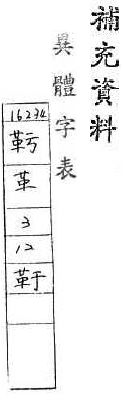 補充資料
異體字表
16234
䩑
革
3
12
靬